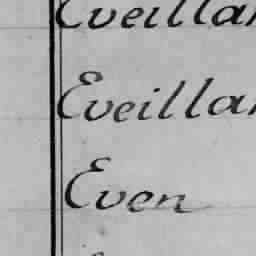 Eveillar
Eveillar
Even